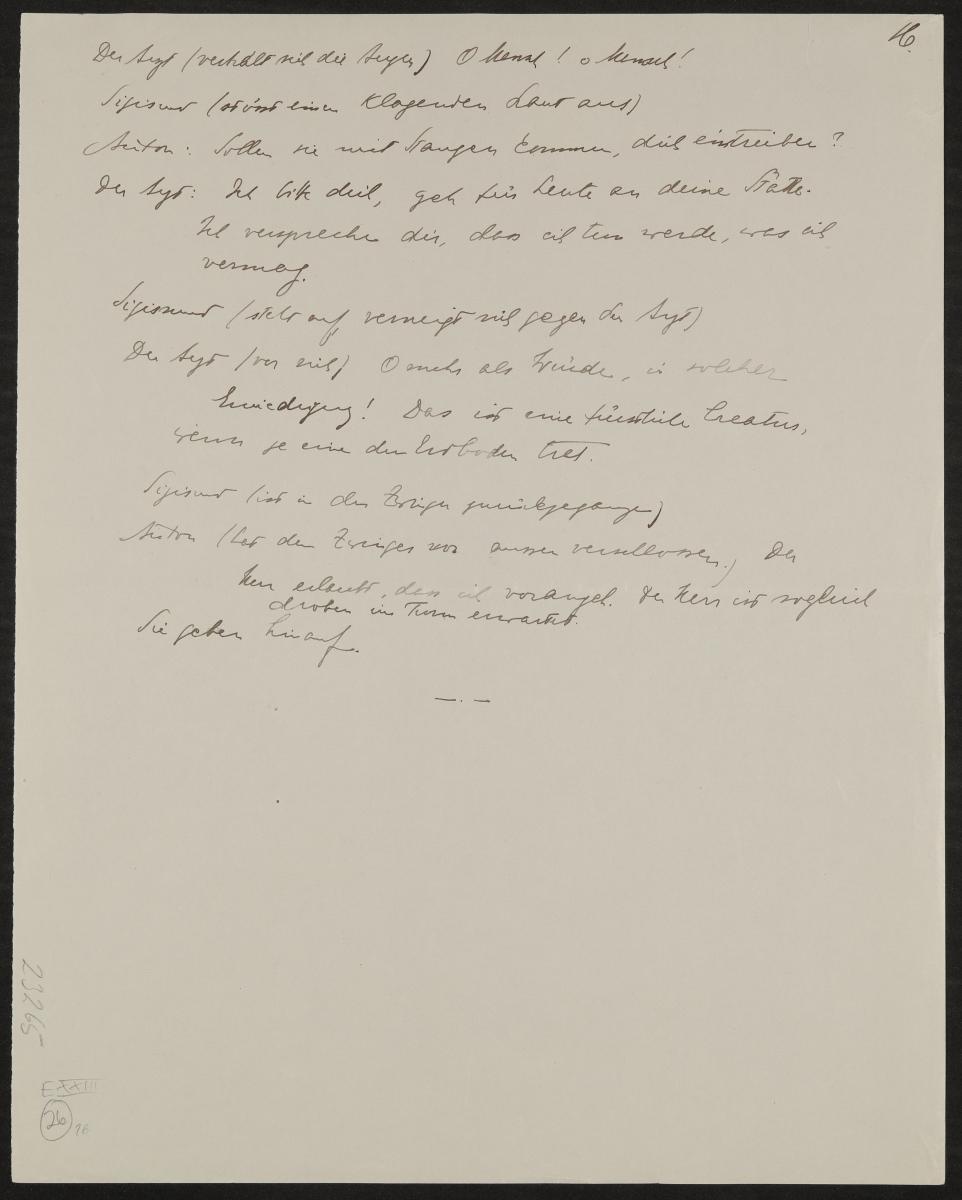 16.
Der Arzt (verhält sich die Augen) O Mensch! o Mensch!
Sigismund (stösst einen klagenden Laut aus)
Anton: Sollen sie mit Stangen kommen, dich eintreiben?
Der Arzt: Ich bitte dich, geh für heute an deine Stätte.
Ich verspreche dir, dass ich tun werde, was ich
vermag.
Sigismund (steht auf, verneigt sich gegen den Arzt)
Der Arzt (vor sich) O mehr als Würde, in solcher
Erniedrigung! Das ist eine fürstliche Creatur,
wenn je eine den Erdboden trat.
Sigismund (ist in den Zwinger zurückgegangen)
Anton (hat den Zwinger von aussen verschlossen.) Der
Herr erlaubt, dass ich vorangeh. Der Herr ist sogleich
droben im Turm erwartet.
Sie gehen hinauf.
—.—
23265
E XXIII
26